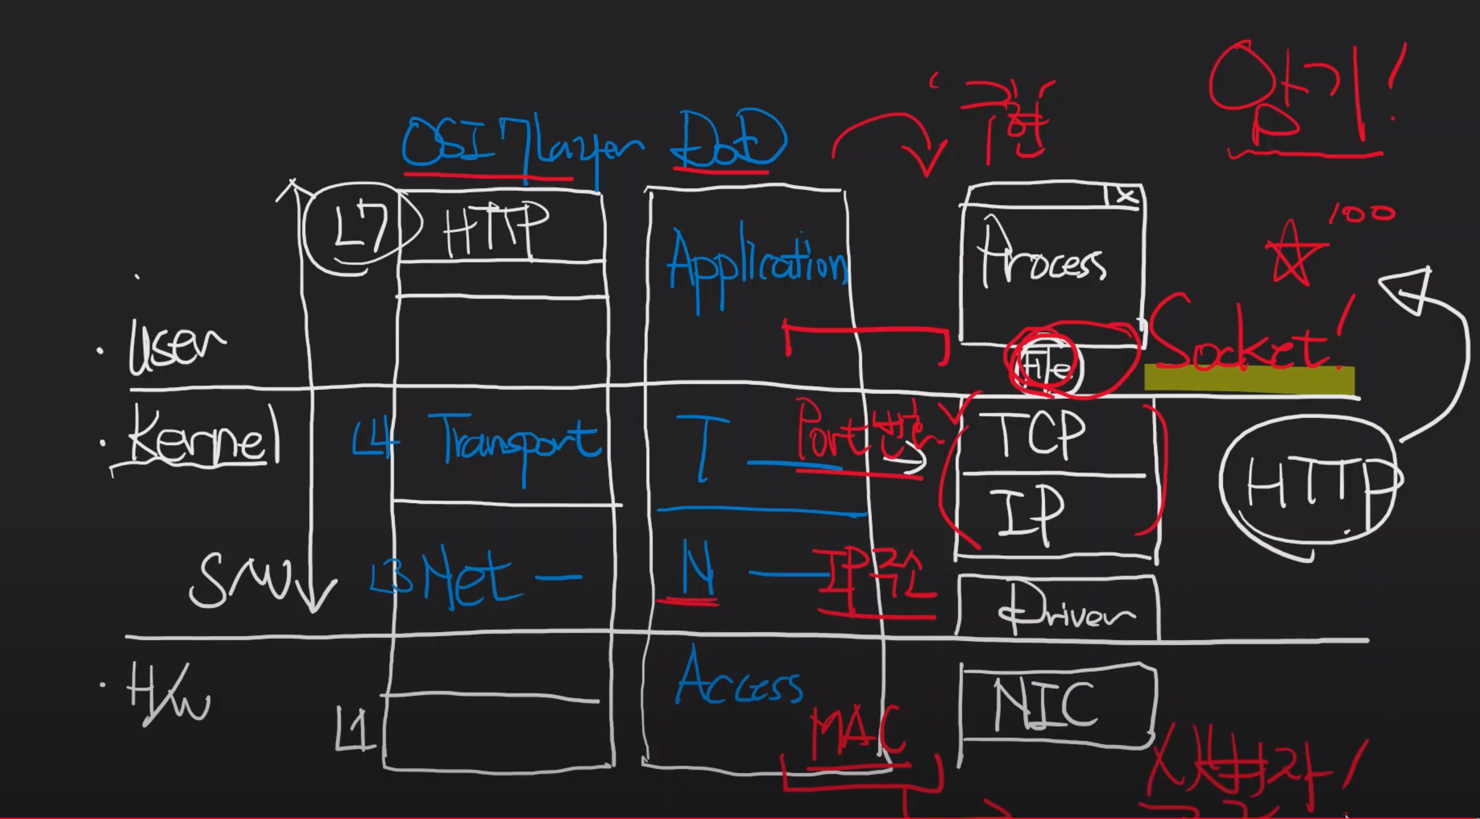 암기!
OSI 7 Layer DoD
L7 HTTP
Application
x
Process
100
User
File
Socket!
Kernel
L4 Transport
T
Port번호
TCP
HTTP
IP
S/W
L3 Net
N
IP주소
Driver
H/W
Access
NIC
L1
MAC